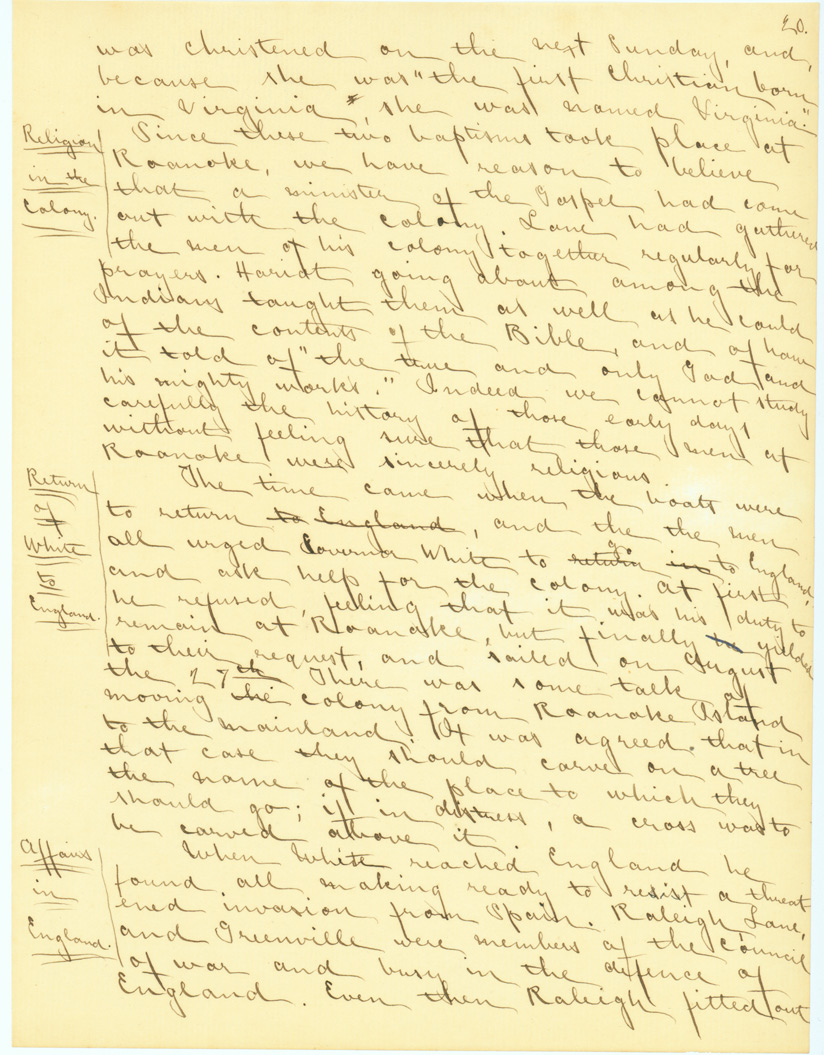 20.
was christened on the next Sunday, and,
because she was "the first Christian born
in Virginia", she was named Virginia."
Religion
in the
Colony.
Since these two baptisms took place at
Roanoke, we have reason to believe
that a minister of the Gospel had come
out with the colony. Lane had gathered
the men of his colony together regularly for
prayers. Hariot going about among the
Indians taught them as well as he could
of the contents of the Bible, and of how
it told of "the true and only God and
his mighty works." Indeed we cannot study
carefully the history of those early days
without feeling sure that those men at
Roanoke were sincerely religious.
Return
of
White
to
England.
The time came when the boats were
to return to England, and the the men
all urged Governor White to return go in to England,
and ask help for the colony. At first
he refused, feeling that it was his duty to
remain at Roanoake, but finally he yielded
to their request, and sailed on August
the 27th. There was some talk of
moving the colony from Roanoke Island
to the mainland. It was agreed that in
that case they should carve on a tree
the name of the place to which they
should go; if in distress, a cross was to
be carved above it.
Affairs
in
England.
When White reached England he
found all making ready to resist a threat
ened invasion from Spain. Raleigh, Lane,
and Greenville were members of the council
of war and busy in the defence of
England. Even then Raleigh fitted out